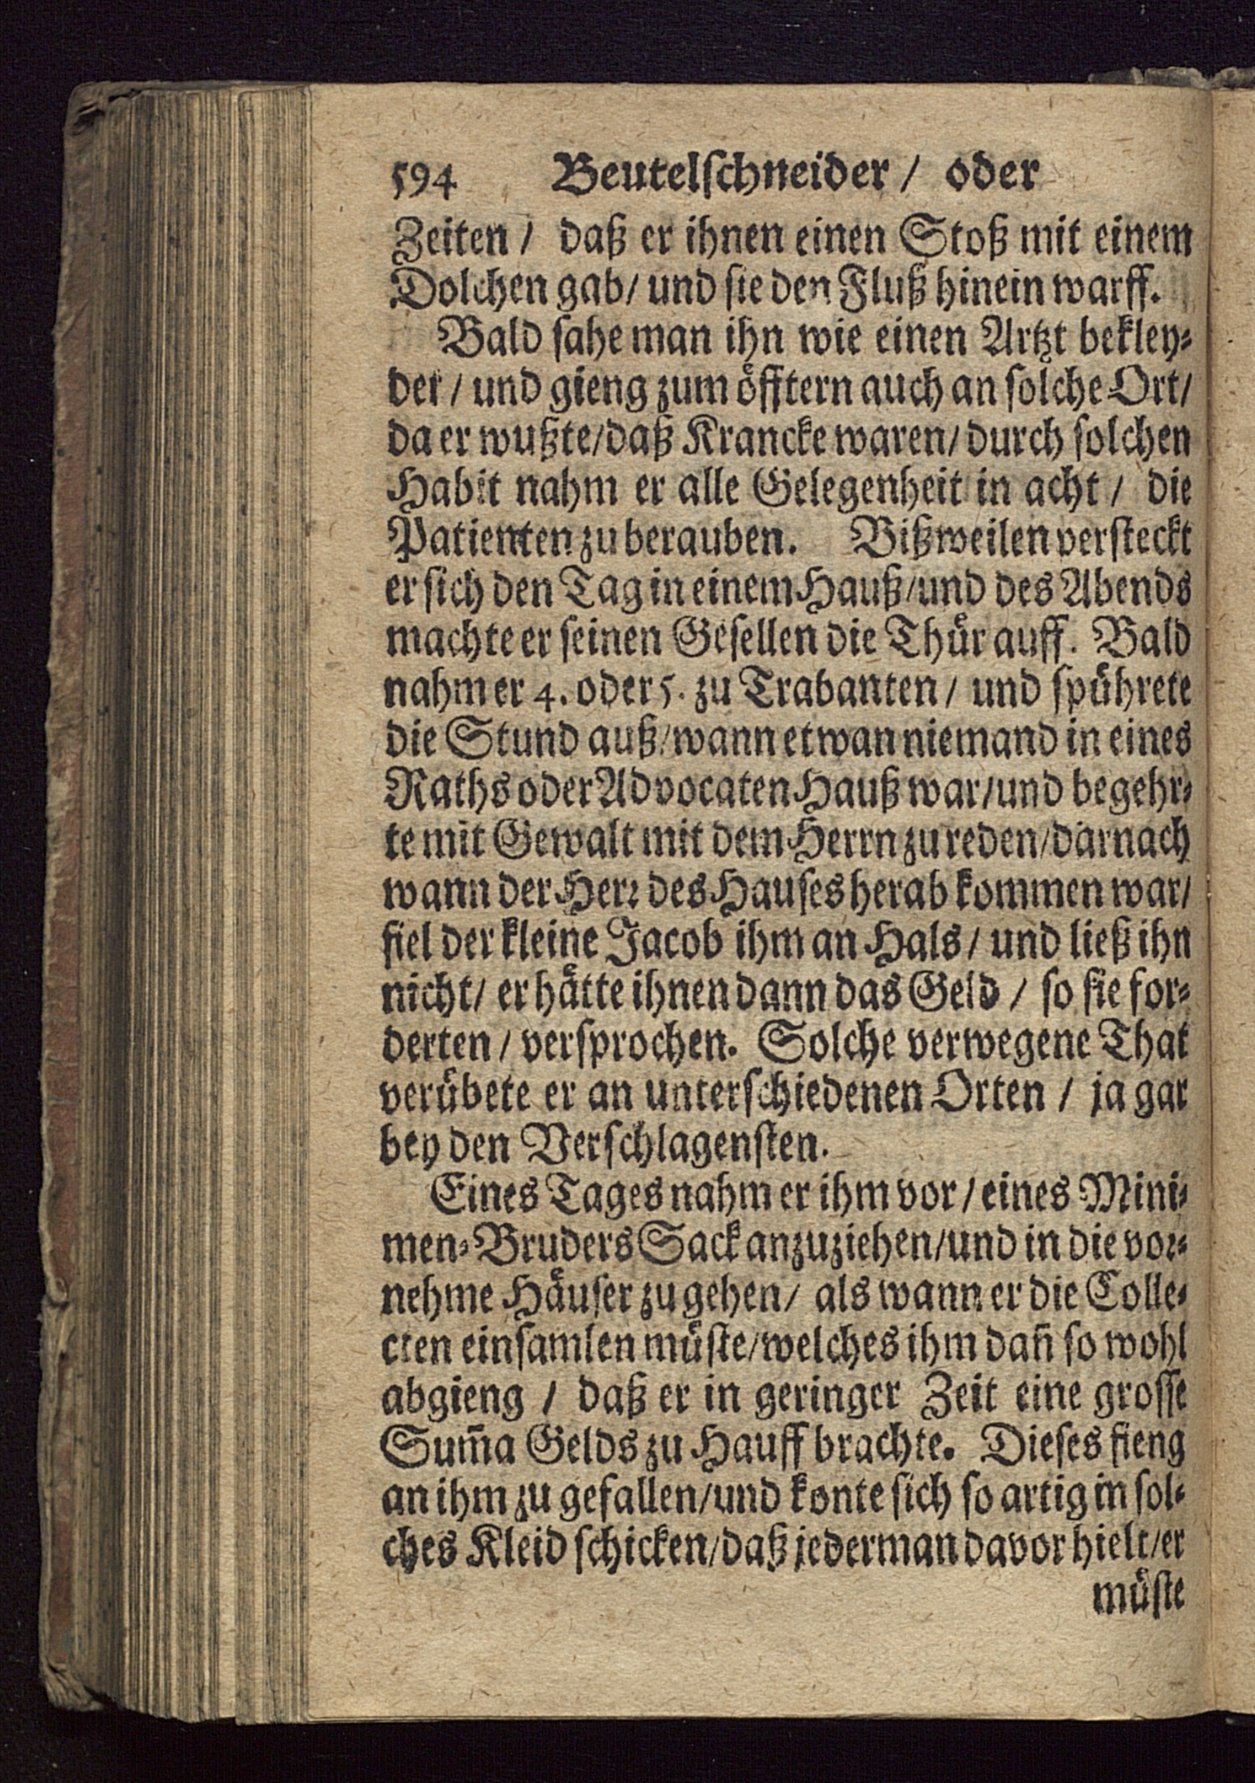 594 Beutelschneider / oder
Zeiten / daß er ihnen einen Stoß mit einem
Dolchen gab/ und sie den Fluß hinein warff.
Bald sahe man ihn wie einen Artzt bekley-
det / und gieng zum öfftern auch an solche Ort/
da er wußte/daß Krancke waren/ durch solchen
Habit nahm er alle Gelegenheit in acht / die
Patienten zu berauben. Bißweilen versteckt
er sich den Tag in einem Hauß/und des Abends
machte er seinen Gesellen die Thür auff. Bald
nahm er 4. oder 5. zu Trabanten / und spührete
die Stund auß/wann etwan niemand in eines
Raths oder Advocaten Hauß war/und begehr-
te mit Gewalt mit dem Herrn zu reden/darnach
wann der Herr des Hauses herab kommen war/
fiel der kleine Jacob ihm an Hals / und ließ ihn
nicht/ er hätte ihnen dann das Geld / so sie for-
derten / versprochen. Solche verwegene That
verübete er an unterschiedenen Orten / ja gar
bey den Verschlagensten.
Eines Tages nahm er ihm vor / eines Mini-
men-Bruders Sack anzuziehen/und in die vor-
nehme Häuser zu gehen/ als wann er die Colle-
cten einsamlen müste/welches ihm dañ so wohl
abgieng / daß er in geringer Zeit eine grosse
Sum̃a Gelds zu Hauff brachte. Dieses fieng
an ihm zu gefallen/und konte sich so artig in sol-
ches Kleid schicken/daß jederman davor hielt/er
müste